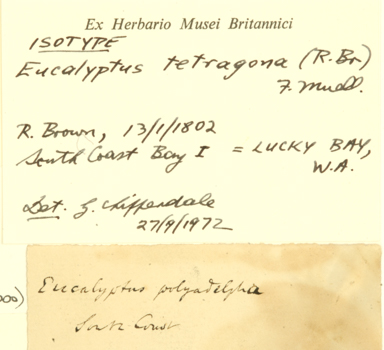 Ex Herbario Musei Britannici
ISOTYPE
Eucalyptus tetragona (R.Br)
F. Muell.
R. Brown, 13/1/1802
South Coast Bay I = LUCKY BAY,
W.A.
Det. G. Chippendale
27/9/1972
000)
Eucalyptus polyadelpha
South Coast